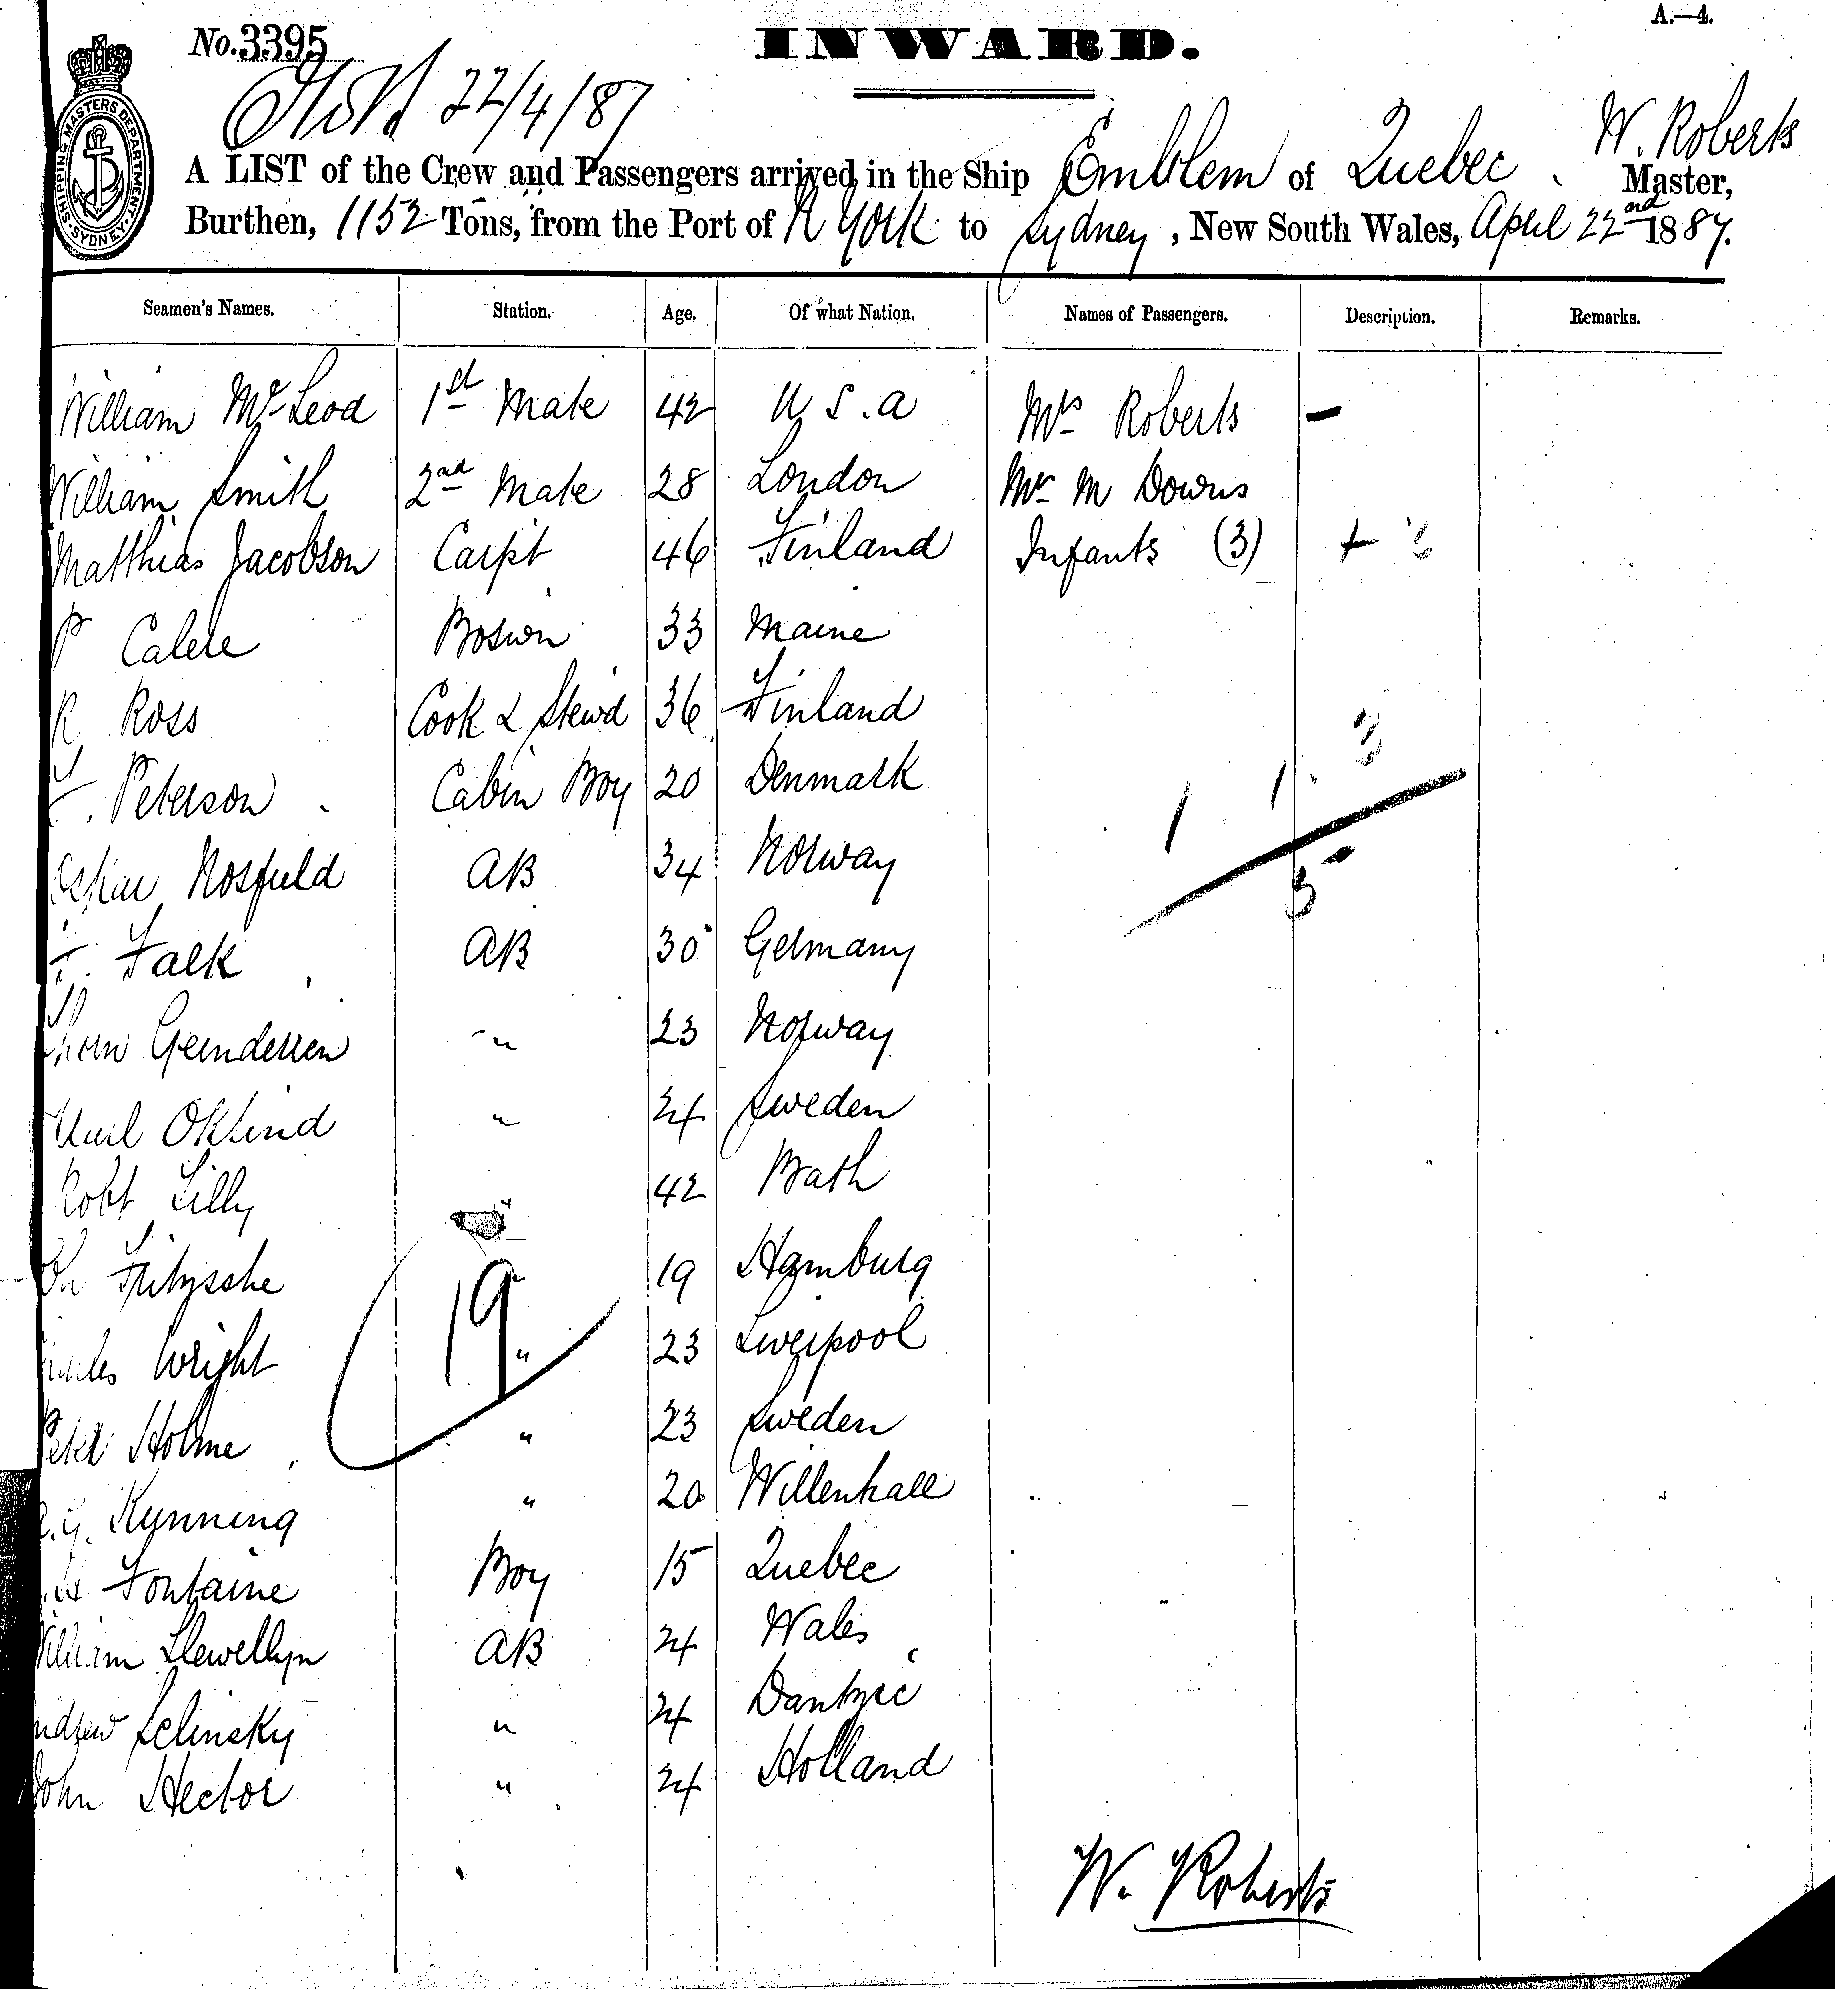 A.—4.
No. 3395
INWARD.
22/4/87
SHIPPING MASTERS DEPARTMENT SYDNEY
W. Roberts
A LIST of the Crew and Passengers arrived in the Ship Emblem of Quebec. Master,
Burthen, 1152 Tons, from the Port of N York to Sydney, New South Wales, April 22nd 1887.
Seamen's Names. Station. Age. Of what Nation. Names of Passengers. Description. Remarks.
William McLeod 1st Mate 42 U S. a Mrs Roberts –
William Smith 2nd Mate 28 London Mr M Downs
Matthias Jacobson Carpt 46 Finland Infants (3) +
P Calele Boswn 33 Maine
R Ross Cook & Stewd 36 Finland 3
Peterson Cabin Boy 20 Denmark 1 1
34 Norway AB
5
F. Falk AB 30 Germany
" 23 Norway
Oklind " 24 Sweden
Robt Lilly " 42 Bath
Fritzsche " 19 Hamburg
19
Wright " 23 Liverpool
Peter Holme " 23 Sweden
Kynning " 20 Willenhall
Fontaine Boy 15 Quebec
William Llewellyn AB 24 Wales
Andrew Selinsky " 24 Dantzic
John Hector " 24 Holland
W. Roberts